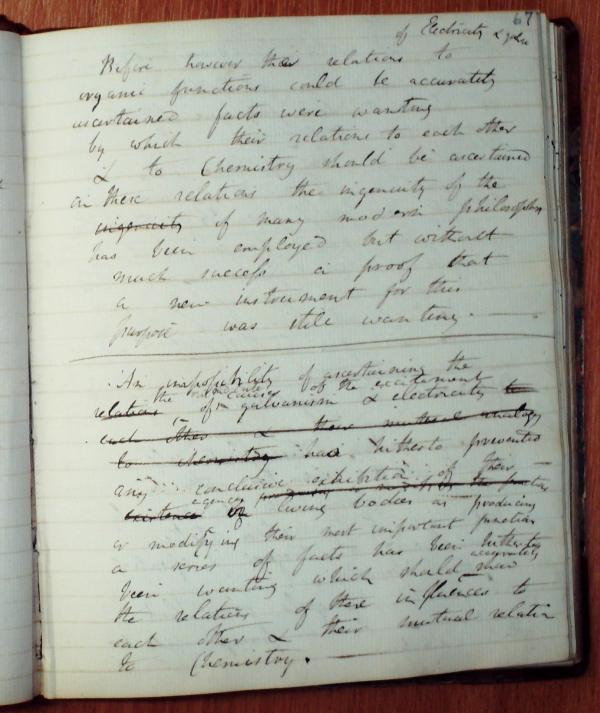 67
of Electricity & galv
Before however their relations to
organic functions could be accurately
ascertained facts were wanting
by which their relations to each other
& to Chemistry should be ascertained
in these relations the ingenuity of the
ingenuity of many modern philosophers
has been employed but without
much success a proof that
a new instrument for this
purpose was still wanting.
An impossibility of ascertaining the
the causes of the excitement
relations of galvanism & electricity to
each other & their mutual analogy
to chemistry has hitherto prevented
any conclusive exhibition of their
agency
existence of living bodies as producing
or modifying their most important functions
a series of facts has been hitherto
accurately
been wanting which should shew
the relations of these influences to
each other & their mutual relation
to Chemistry.